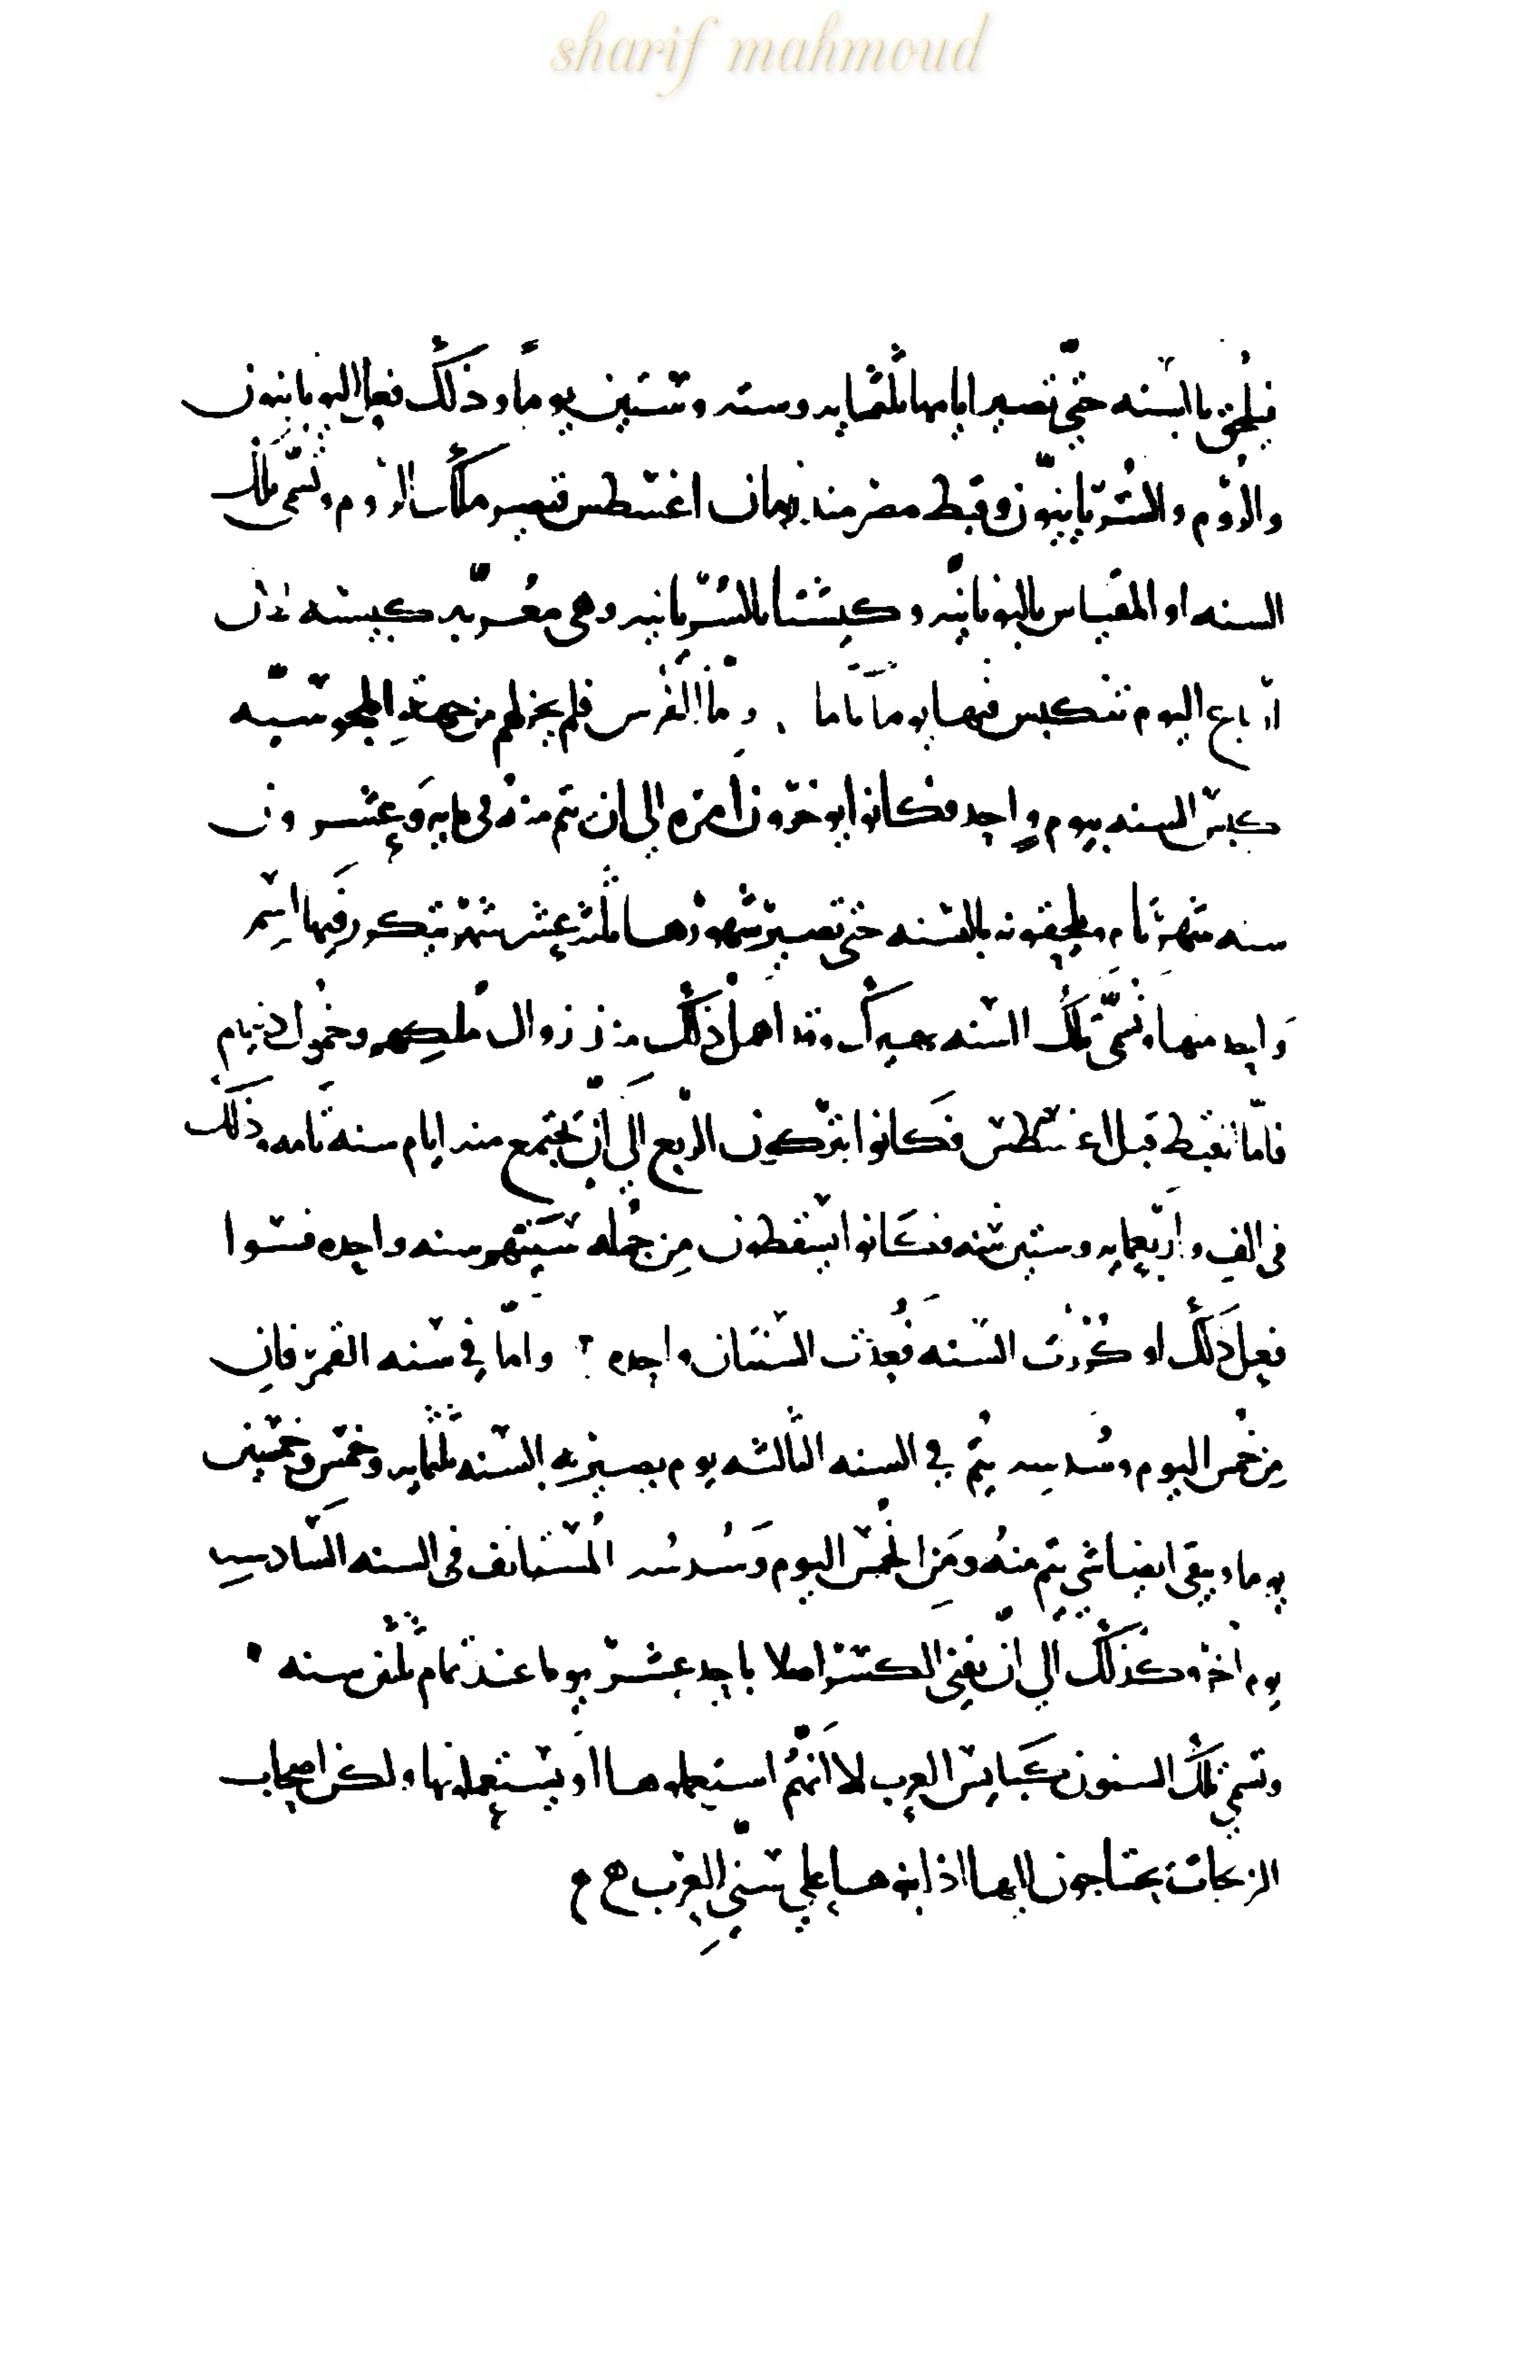 sharif mahmoud
فيلحق بالسنه حتّى تصير ايامها ثلثمايه وسته وستين يوماً وذلك فعل اليونانيون
والرّوم والسُّرْيانيّون وقبط مصر منذ زمان اغسطس قيصر ملك الروم وتسمّى تلك
السنه او المقياس باليونانيّه وكبيشتا بالسّريانيه وهى معرّبه كبيسه لان
ارباع اليوم تنكبس فيها يوماً تاما . وامّا الفرس فلم يجز لهم من جهه المجوسيّه
كبس السنه بيوم واحد فكانوا يوخّرون امره الي ان يتم منه فى مايه وعشرون
سنه شهر تام ويلحقونه بالسنه حتى تصير شهورها ثلثه عشر شهر يتكرر فيها اسم
واحد منها وتسمّى تلك السنه بهيزك وقد اهمل ذلك منذ زوال ملكهم وخمول دينهم
فامّا القبط قبل اغسطس فكانوا يتركون الربع الي ان يجتمع منه ايام سنه تامه وذلك
فى الف واربعمايه وستين سنه فكانوا يسقطون من جُمله سنيهم سنه واحده فسوا
فعل ذلك او كُرّرت السنه فعُدّت السنتان واحده ؛ وامّا في سنه القمر فان
من خمس اليوم وسُدسه يتم في السنه الثالثه يوم يصير به السنه ثلثمايه وخمس وخمسين
يوما ويبقى ايضا شي يتم منه ومن الخمس اليوم وسُدسه المستانف فى السنه السادسه
يوم اخر وكذلك الي ان يفنى الكسر اصلا باحد عشر يوما عند تمام ثلثين سنه
وتسمى تلك السنون كبايس العرب لا انهم استعملوها او يستعملونها ولكن اصحاب
الزيجات يحتاجون اليها اذا بنوها على سني العرب